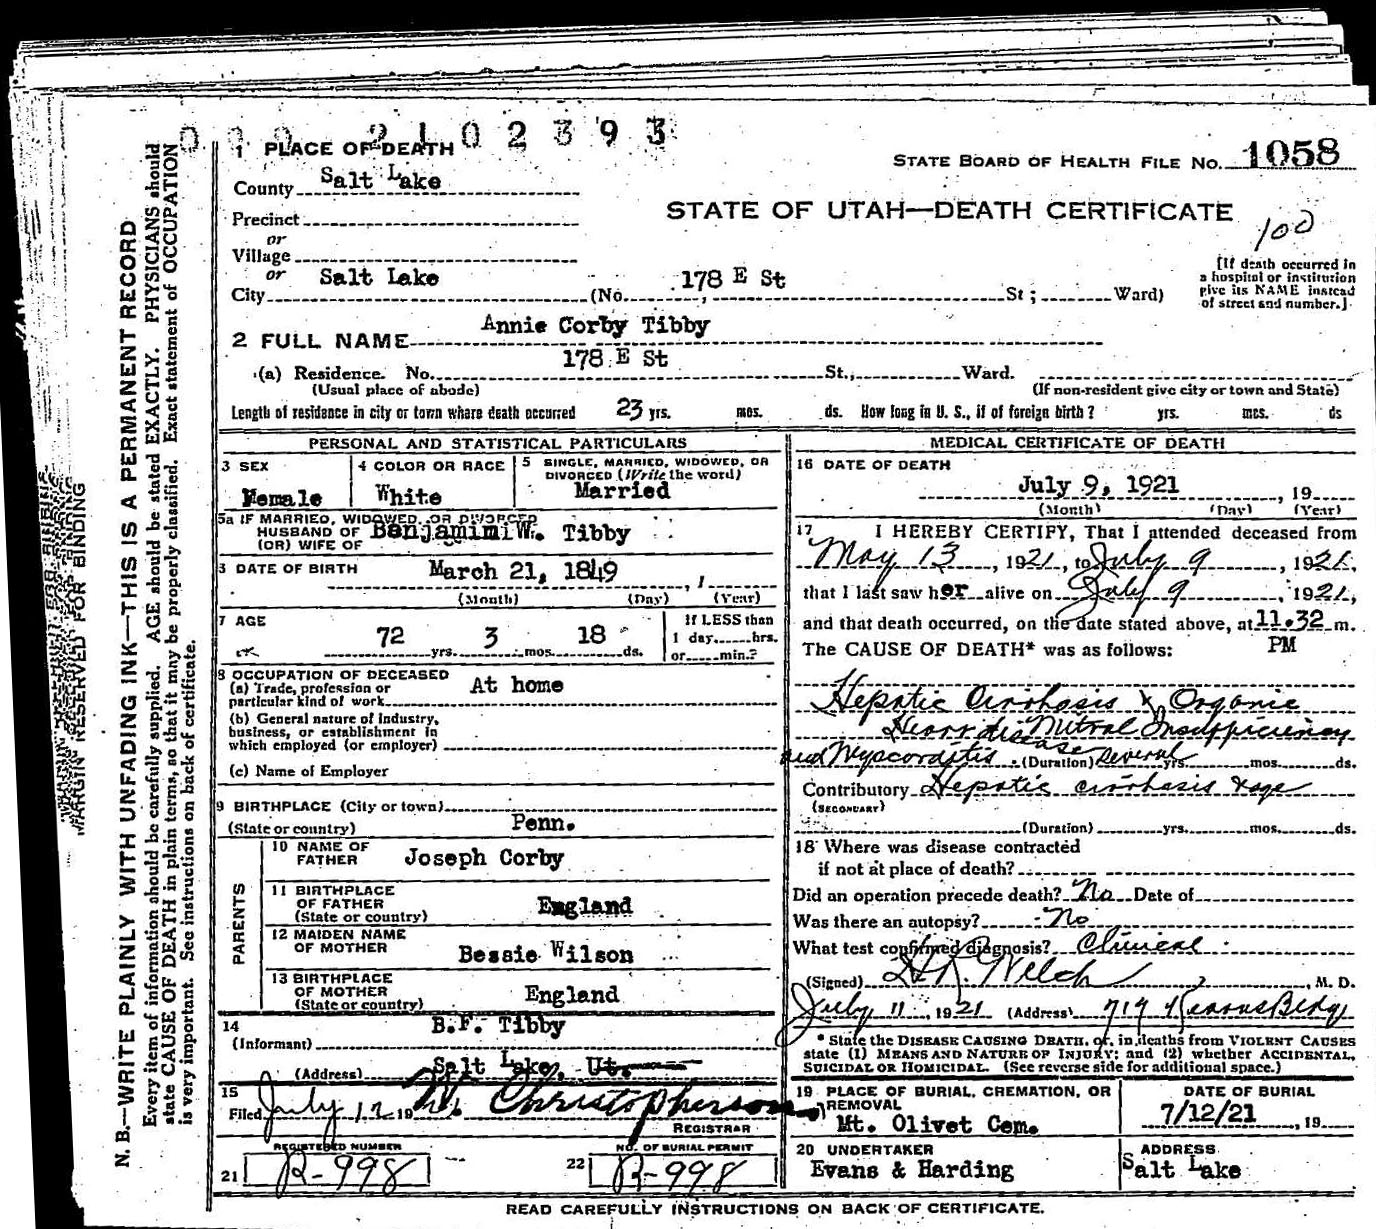 000 2102393
1 PLACE OF DEATH
STATE BOARD OF HEALTH FILE No. 1058
County Salt Lake
STATE OF UTAH—DEATH CERTIFICATE
Precinct
100
or
Village
or
City Salt Lake (No. 178 E St St; Ward)
[If death occurred in
a hospital or institution
give its NAME instead
of street and number.]
2 FULL NAME Annie Corby Tibby
(a) Residence. No. 178 E St St., Ward.
(Usual place of abode) (If non-resident give city or town and State)
Length of residence in city or town where death occurred 23 yrs. mos. ds. How long in U. S., if of foreign birth? yrs. mos. ds
PERSONAL AND STATISTICAL PARTICULARS
3 SEX
Female
4 COLOR OR RACE
White
5 SINGLE, MARRIED, WIDOWED, OR
DIVORCED (Write the word)
Married
5a IF MARRIED, WIDOWED, OR DIVORCED
HUSBAND OF
(OR) WIFE OF Benjamimi W. Tibby
DATE OF BIRTH March 21, 1849
(Month) (Day) (Year)
7 AGE
72 yrs. 3 mos. 18 ds.
If LESS than
1 day, hrs.
or min.?
8 OCCUPATION OF DECEASED
(a) Trade, profession or
particular kind of work At home
(b) General nature of Industry,
business, or establishment in
which employed (or employer)
(c) Name of Employer
9 BIRTHPLACE (City or town)
(State or country) Penn.
PARENTS
10 NAME OF
FATHER Joseph Corby
11 BIRTHPLACE
OF FATHER
(State or country) England
12 MAIDEN NAME
OF MOTHER Bessie Wilson
13 BIRTHPLACE
OF MOTHER
(State or country) England
14
(Informant) B.F. Tibby
(Address) Salt Lake, Ut.
15
Filed July 12 19 Christopherson
REGISTRAR
REGISTERED NUMBER
21 R-998
NO. OF BURIAL PERMIT
22 R-998
MEDICAL CERTIFICATE OF DEATH
16 DATE OF DEATH
July 9, 1921, 19
(Month) (Day) (Year)
17 I HEREBY CERTIFY, That I attended deceased from
May 13, 1921, to July 9, 1921,
that I last saw her alive on July 9, 1921,
and that death occurred, on the date stated above, at 11.32 m.
PM
The CAUSE OF DEATH* was as follows:
Hepatic Cirrhosis & Organic
Heart disease Mitral Insufficiency
and Myocarditis (Duration) Several yrs. mos. ds.
Contributory Hepatic cirrhosis & age
(SECONDARY)
(Duration) yrs. mos. ds.
18 Where was disease contracted
if not at place of death?
Did an operation precede death? No Date of
Was there an autopsy? No
What test confirmed diagnosis? Clinical
(Signed) Welch, M. D.
July 11, 1921 (Address) 714 Kearns Bldg
* State the DISEASE CAUSING DEATH, or, in deaths from VIOLENT CAUSES
state (1) MEANS AND NATURE OF INJURY; and (2) whether ACCIDENTAL,
SUICIDAL OR HOMICIDAL. (See reverse side for additional space.)
19 PLACE OF BURIAL, CREMATION, OR
REMOVAL
Mt. Olivet Cem.
DATE OF BURIAL
7/12/21, 19
20 UNDERTAKER
Evans & Harding
ADDRESS
Salt Lake
READ CAREFULLY INSTRUCTIONS ON BACK OF CERTIFICATE.
MARGIN RESERVED FOR BINDING
N. B.—WRITE PLAINLY WITH UNFADING INK—THIS IS A PERMANENT RECORD
Every item of information should be carefully supplied. AGE should be stated EXACTLY. PHYSICIANS should
state CAUSE OF DEATH in plain terms, so that it may be properly classified. Exact statement of OCCUPATION
is very important. See instructions on back of certificate.